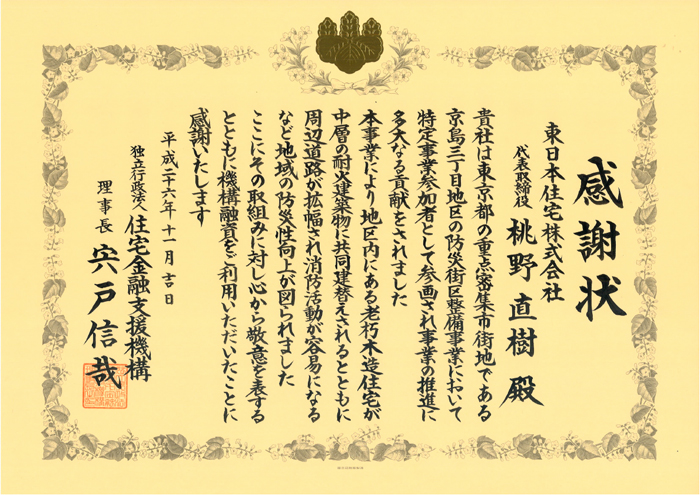 感謝状
東日本住宅株式会社
代表取締役 桃野直樹殿
貴社は東京都の重点密集市街地である
京島三丁目地区の防災街区整備事業において
特定事業参加者として参画され事業の推進に
多大なる貢献をされました
本事業により地区内にある老朽木造住宅が
中層の耐火建築物に共同建替えされるとともに
周辺道路が拡幅され消防活動が容易になる
など地域の防災性向上が図られました
ここにその取組みに対し心から敬意を表する
とともに機構融資をご利用いただいたことに
感謝いたします
平成二十六年十一月吉日
独立行政法人 住宅金融支援機構
理事長 宍戸信哉